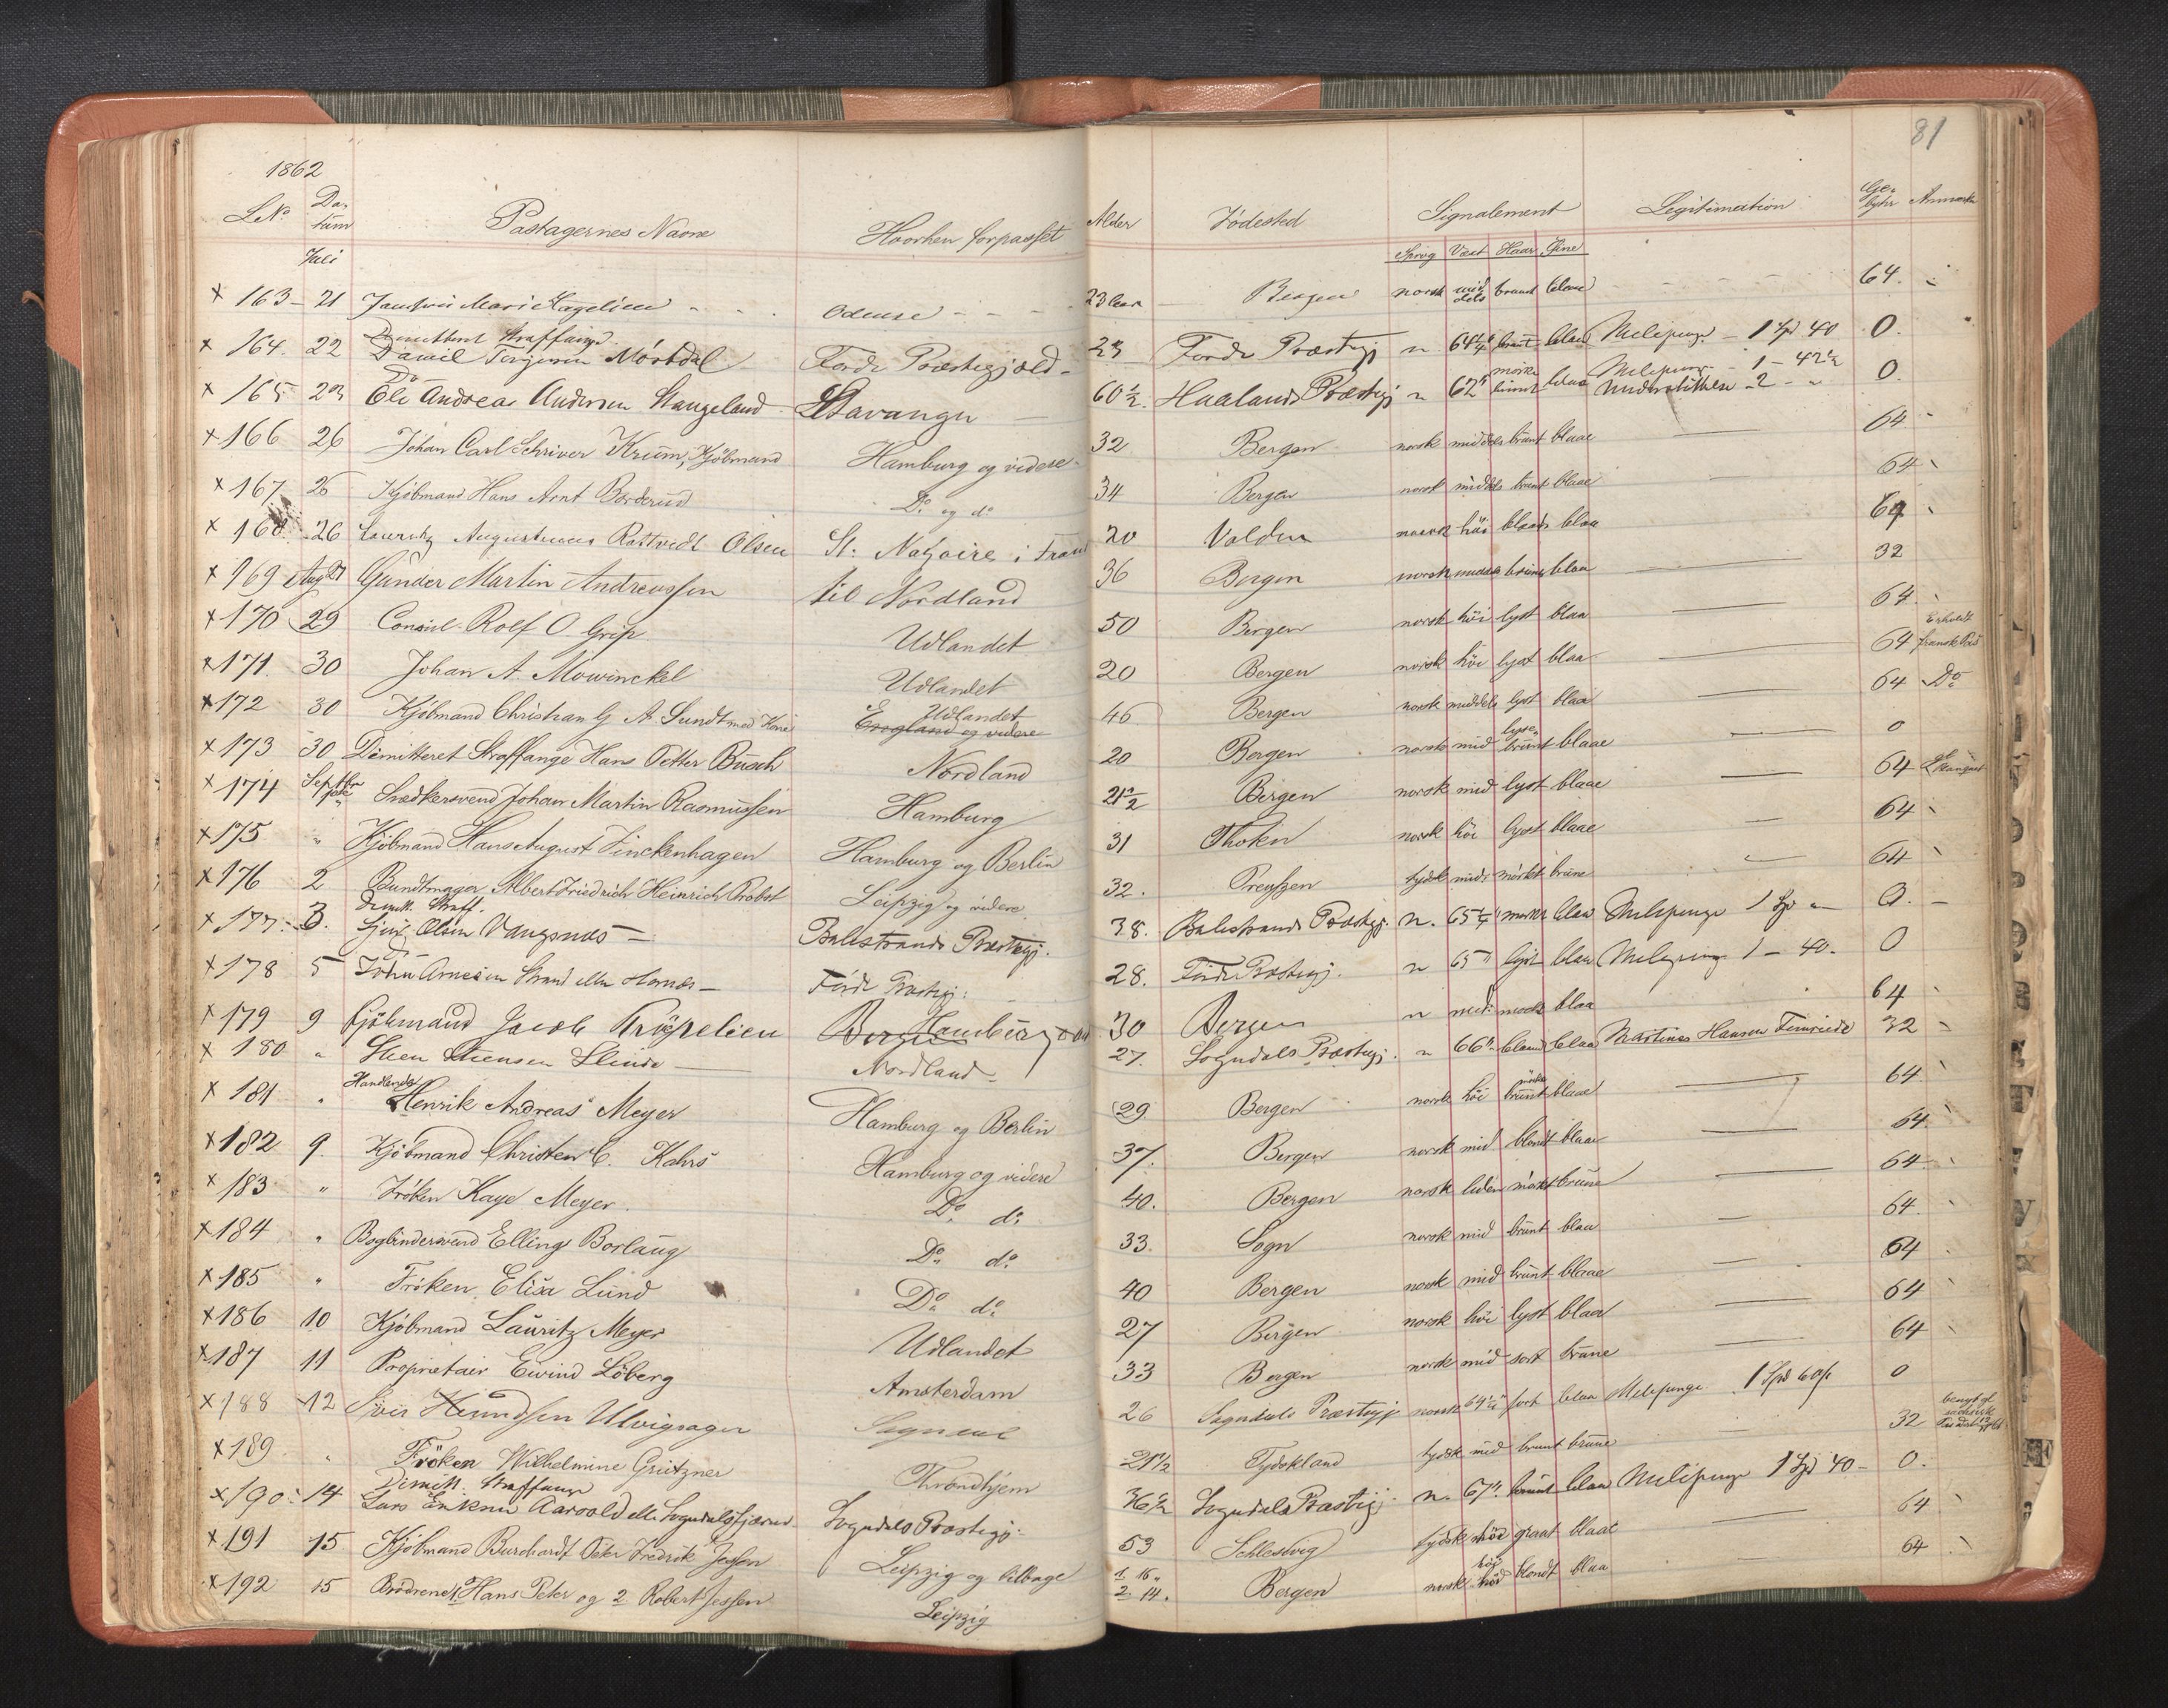 81
1862
LNo Datum Pastagernes Navne Hvorhen forpasset Alder Fødested Signalement Legitimation Gebyhr Anmærk
Sprog Væxt Haar Øine
Juli
x 163 21 Marie Odense 23 Bergen norsk middels brunt blaae 64
x 164 22 Dimittent Straffange Daniel Førde Præstegjæld 23 Førde Præstegj n 64 1/4" brunt blaa Milepenge 1 Spd 40 0
x 165 23 Do Ole Andreas Andersen Stangeland Stavanger 60 1/2 Haalands Præstegj n 62" mørke blaa Milepenge 1 - 42 1/2 Understøttelse 2 - " 0
x 166 26 Johan Carl Schriver Krum, Kjöbmand Hamburg og videre 32 Bergen norsk middels brunt blaae 64
x 167 26 Kjöbmand Hans Arnt Do og do 34 Bergen norsk middels brunt blaae 64
x 168 26 Lauritz Augustinus Olsen St. Nazaire i 20 norsk höi blaa 64
x 169 Aug 27 Gunder Martin Andreassen til Nordland 36 Bergen norsk middels brune blaa 32
x 170 29 Consul Rolf O. Grip Udlandet 50 Bergen norsk höi lyst blaa 64
x 171 30 Johan A. Mowinckel Udlandet 20 Bergen norsk höi lyst blaa 64 Erholdt fransk Pas
x 172 30 Kjöbmand Christian G A Sundt med Kone Udlandet England og videre 46 Bergen norsk middels lyst blaa 64 Do
x 173 30 Dimitteret Straffange Hans Petter Busch Nordland 20 Bergen norsk mid lyse brunt blaae 0
x 174 Septbr Snedkersvend Johan Martin Rasmussen Hamburg 21 1/2 Bergen norsk mid lyst blaae 64
x 175 " Kjöbmand Hans August Finckenhagen Hamburg og Berlin 31 norsk höi lyst blaae 64
x 176 2 Bundtmager Albert Friedrich Heinrich Probst Leipzig og videre 32. Preussen tydsk mid: mörkt brune 64
x 177 3. Dimitt. Straff. Olsen Vangsnæs Balestrands Præstegj. 38. Balestrands Præstegj. n. 65 1/4" mørkt blaa Milepenge 1 Spd " 0.
x 178 5 Do Arnesen Strand eller Førde Præstegj. 28. Førde Præstegj. n 65" lyst blaa Milepenge 1 - 40. 0
x 179 9 Kjöbmand Jacob Bergen Hamburg 30 Bergen n mid: mörk blaa 64
x 180 " Steen Slinde Nordland 27. Sogndals Præstegj. n 66" bland blaa Martinus Hansen 32
x 181 " Handlende Henrik Andreas Meyer Hamburg og Berlin 29 Bergen norsk höi mörke brunt blaae 64
x 182 9. Kjöbmand Christen C. Kahrs Hamburg og videre 37. Bergen norsk mid blondt blaa 64
x 183 " Fröken Kaye Meyer. Do do 40. Bergen norsk liden mörkt brune 64
x 184 " Bogbindersvend Elling Borlaug Do do 33. Sogn norsk mid brunt blaa 64
x 185 " Fröken Elisa Lund Do do 40 Bergen norsk mid brunt blaae 64
x 186 10 Kjöbmand Lauritz Meyer Udlandet 27 Bergen norsk höi lyst blaa 64
x 187 11 Proprietair Eivind Löberg Amsterdam 33 Bergen norsk mid sort brune 64
x 188 12 Sogndal 26 Sogndals Præstegj norsk 64 1/2" sort blaa Milepenge 1 Spd 60 0
x 189 " Fröken Wilhelmine Grützner Throndhjem 21 1/2 Tydskland tydsk mid brunt brune 32
x 190 14 Dimitt. Straffange Lars Eriksen eller Sogndals Præstegj. 36 1/2 Sogndals Præstegj. n. 67" brunt blaa Milepenge 1 Spd 40 0.
x 191 15 Kjöbmand Burchardt Peter Fredrik Jessen Leipzig og tilbage 53 Schlesvig tydsk höi graat blaat 64
x 192 15 Brödrene 1. Hans Peter og 2. Robert Jessen Leipzig 1. 16. 2. 14. Bergen norsk höi blondt blaa 64